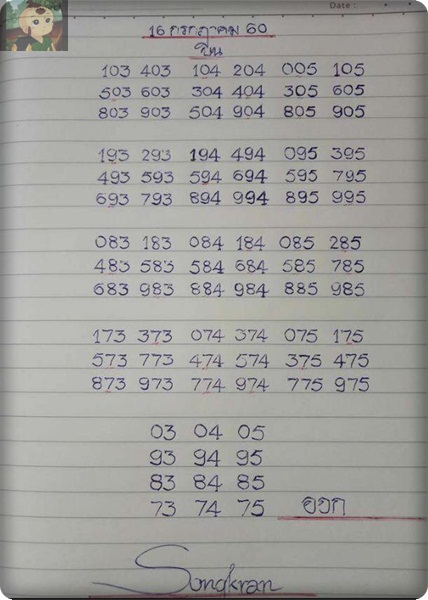 Date :
16 กรกฎาคม 60
บน
103 403 104 204 005 105
503 603 304 404 305 605
803 903 504 904 805 905
193 293 194 494 095 395
493 593 594 694 595 795
693 793 894 994 895 995
083 183 084 184 085 285
483 583 584 684 585 785
683 983 884 984 885 985
173 373 074 374 075 175
573 773 474 574 375 475
873 973 774 974 775 975
03 04 05
93 94 95
83 84 85
73 74 75
Songkran